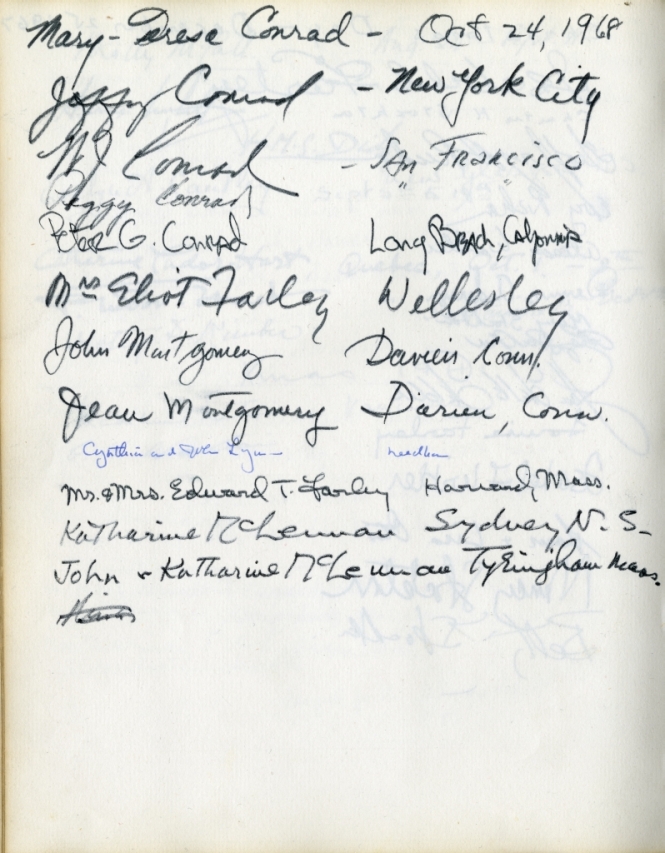 Mary-Terese Conrad - Oct 24, 1968
Jeffry Conrad - New York City
Conrad - San Francisco
Peggy Conrad " "
Peter G. Conrad Long Beach, California
Mrs Eliot Farley Wellesley
John Montgomery Darien Conn.
Jean Montgomery Darien, Conn.
Cynthia and John Lynn Needham
Mr. & Mrs. Edward T. Farley Harvard, Mass.
Katharine McLennan Sydney N. S-
John & Katharine McLennan Tyringham Mass.